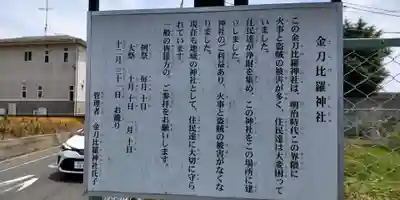 金刀比羅神社
この金刀比羅神社は、明治時代この界隈に
火事と盗賊の被害が多く、住民達は大変困って
いました。
住民達が浄財を集め、この神社をこの場所に建
立しました。
神社のご利益あり、火事と盗賊の被害がなくな
りました。
現在も地域の神社として、住民達に大切に守ら
れています。
一般の皆様方の、ご参拝をお願いします。
例祭 毎月十日
大祭 十月十日 一月十日
十二月三十一日 お篝り
管理者 金刀比羅神社氏子